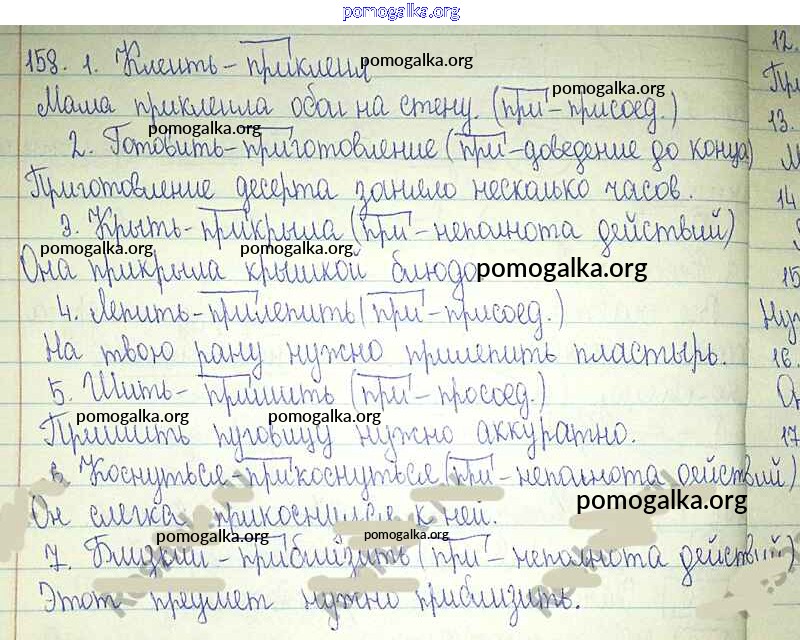 pomogalka.org
158. 1. Клеить - приклеил
pomogalka.org
12.
Мама приклеила обои на стену. (при - присоед.)
pomogalka.org
При
pomogalka.org
13.
2. Готовить - приготовление (при - доведение до конца)
М
Приготовление десерта заняло несколько часов.
14
3. Крыть - прикрыла (при - неполнота действий)
pomogalka.org
pomogalka.org
Она прикрыла крышкой блюдо
pomogalka.org
15
4. Лепить - прилепить (при - присоед.)
Ну
На твою рану нужно прилепить пластырь.
16.
5. Шить - пришить (при - просоед.)
Он
pomogalka.org
pomogalka.org
Пришить пуговицу нужно аккуратно.
17
6. Коснуться - прикоснуться (при - неполнота действий)
pomogalka.org
Он слегка прикоснулся к ней.
pomogalka.org
pomogalka.org
7. Близкий - приблизить (при - неполнота действий)
Этот предмет нужно приблизить.